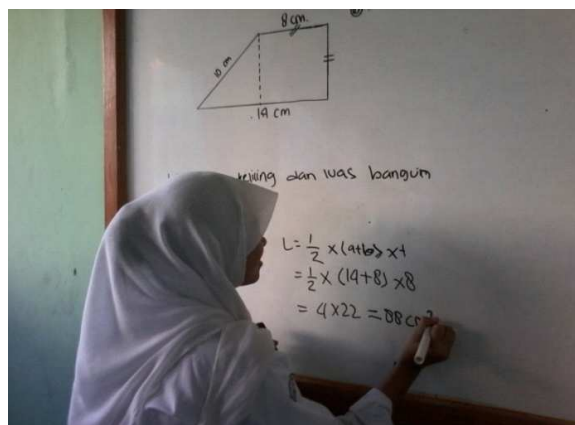 8 cm.
10 cm
14 cm
keliling dan luas bangun
L = 1/2 x (a+b) x t
= 1/2 x (14+8) x 8
= 4 x 22 = 88 cm²